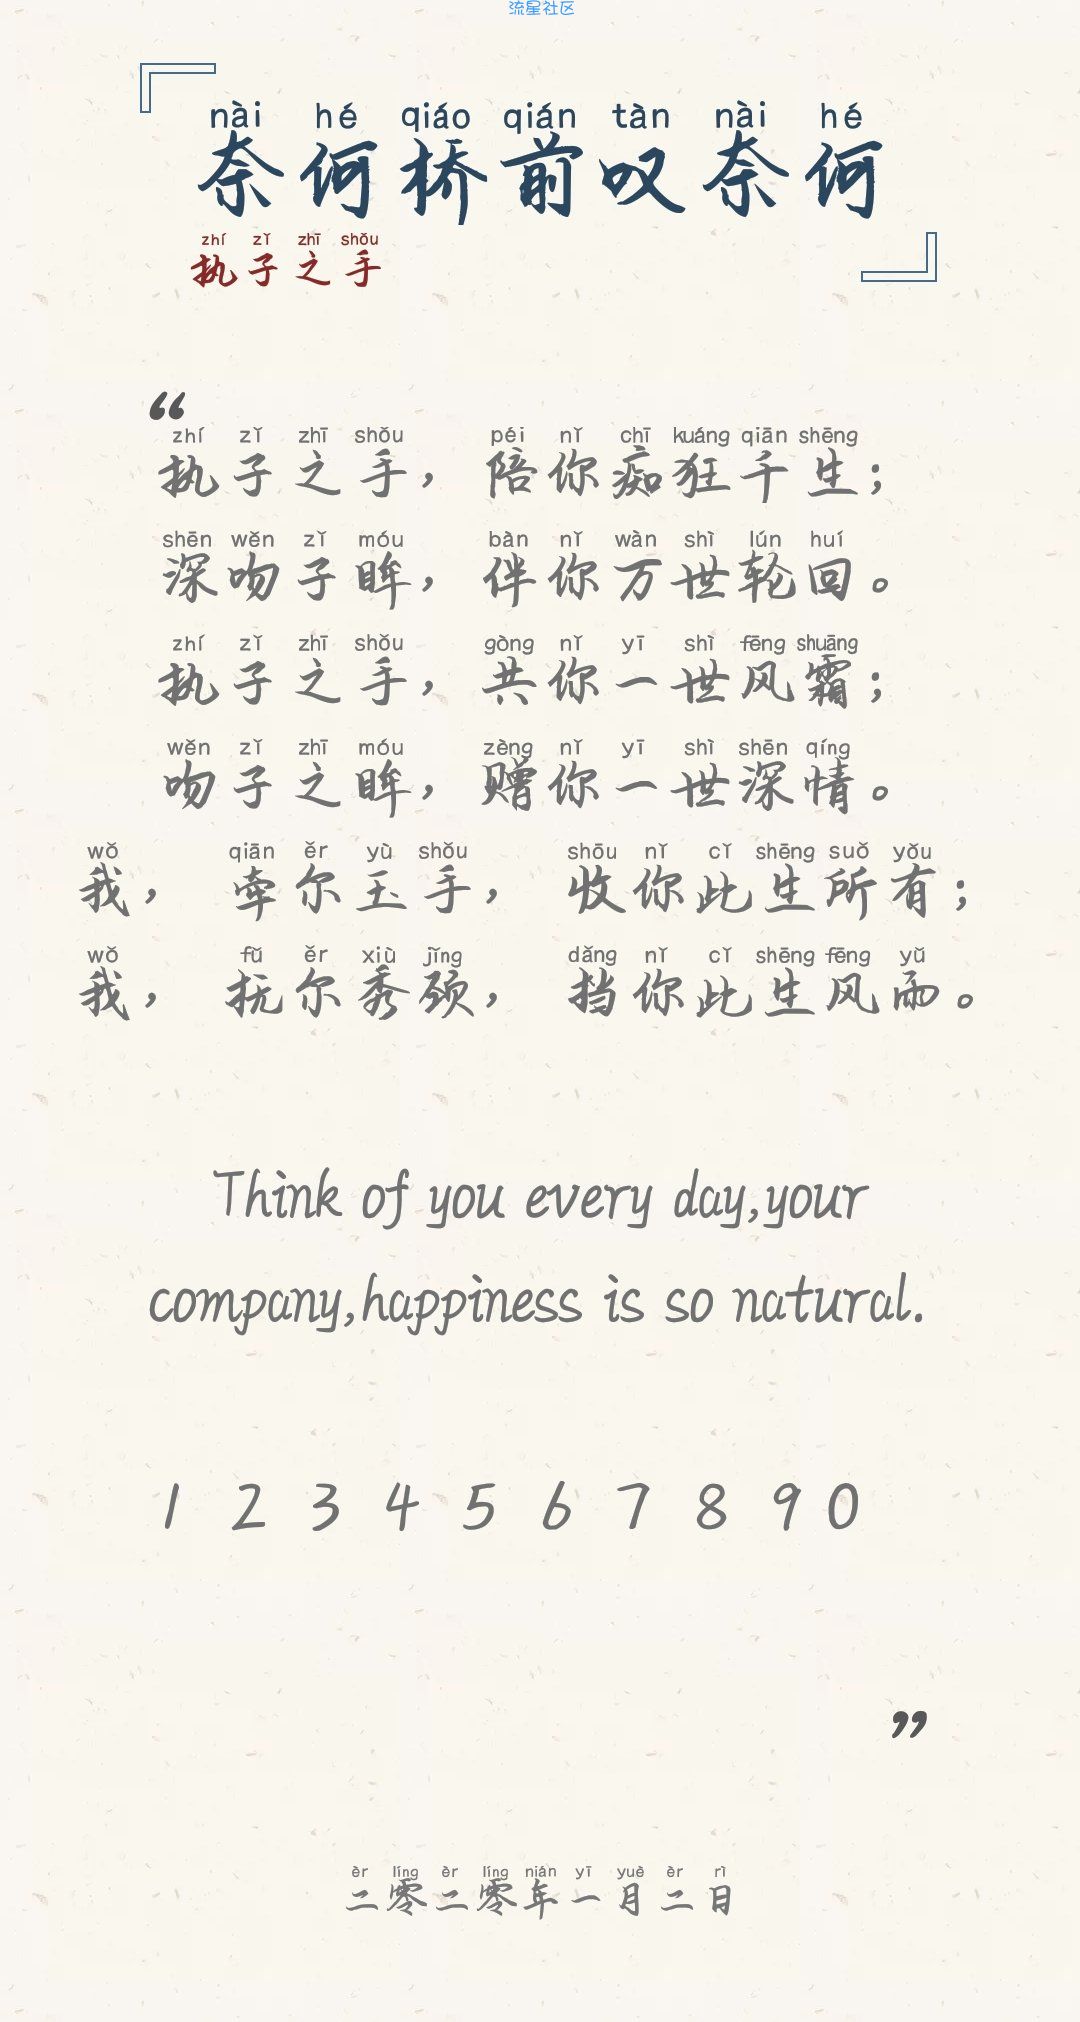 流星社区
nài hé qiáo qián tàn nài hé
奈何桥前叹奈何
zhí zǐ zhī shǒu
执子之手
“
zhí zǐ zhī shǒu péi nǐ chī kuáng qiān shēng
执子之手，陪你痴狂千生；
shēn wěn zǐ móu bàn nǐ wàn shì lún huí
深吻子眸，伴你万世轮回。
zhí zǐ zhī shǒu gòng nǐ yī shì fēng shuāng
执子之手，共你一世风霜；
wěn zǐ zhī móu zèng nǐ yī shì shēn qíng
吻子之眸，赠你一世深情。
wǒ qiān ěr yù shǒu shōu nǐ cǐ shēng suǒ yǒu
我，牵尔玉手，收你此生所有；
wǒ fǔ ěr xiù jǐng dǎng nǐ cǐ shēng fēng yǔ
我，抚尔秀颈，挡你此生风雨。
Think of you every day,your
company,happiness is so natural.
1 2 3 4 5 6 7 8 9 0
”
èr líng èr líng nián yī yuè èr rì
二零二零年一月二日